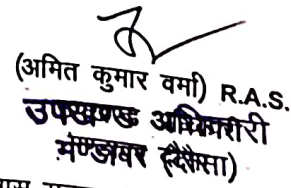 (अमित कुमार वर्मा) R.A.S.
उपखण्ड अधिकारी
मण्डावर (दौसा)